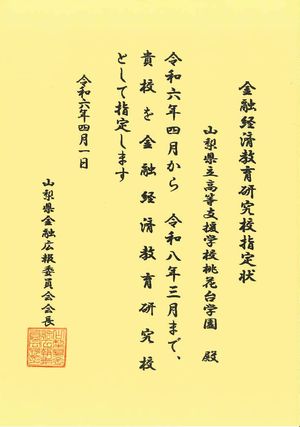 金融経済教育研究校指定状
山梨県立高等支援学校桃花台学園 殿
令和六年四月から 令和八年三月まで、
貴校を金融経済教育研究校
として指定します
令和六年四月一日
山梨県金融広報委員会会長